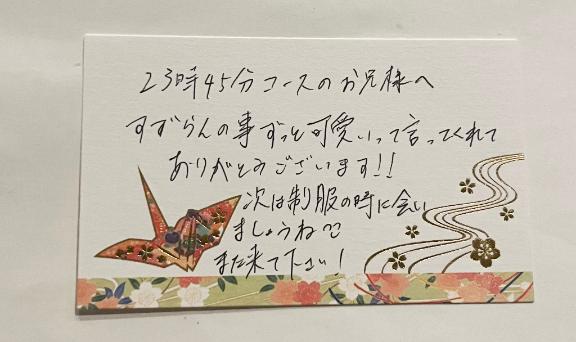 23時45分コースのお兄様へ
すずらんの事ずっと可愛いって言ってくれて
ありがとうございます!!
次は制服の時に会い
ましょうね♡
また来て下さい!